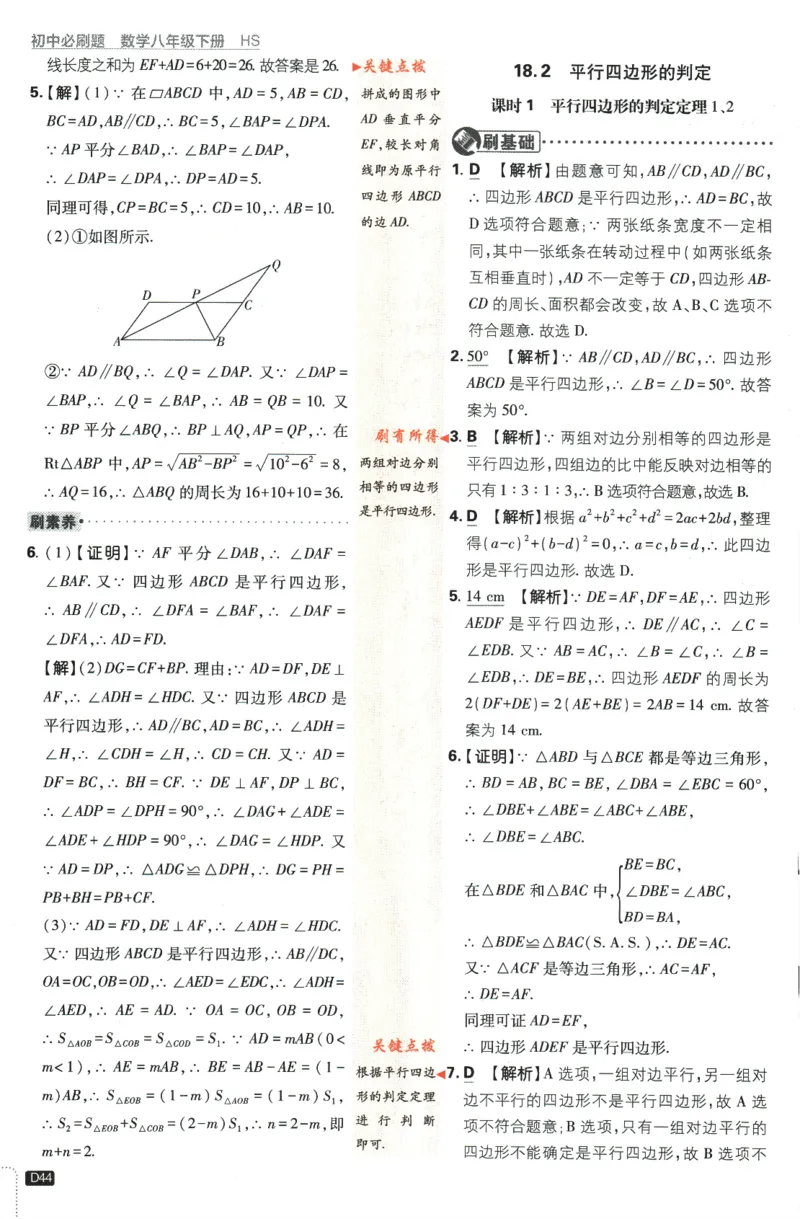 初中必刷题 数学八年级下册 HS
线长度之和为 EF+AD=6+20=26. 故答案是 26.
5.【解】(1)∵ 在▱ABCD 中,AD=5,AB=CD,
BC=AD,AB∥CD,∴ BC=5,∠BAP=∠DPA.
∵ AP 平分∠BAD,∴ ∠BAP=∠DAP,
∴ ∠DAP=∠DPA,∴ DP=AD=5.
同理可得,CP=BC=5,∴ CD=10,∴ AB=10.
(2)①如图所示.
Q
D P C
A B
②∵ AD∥BQ,∴ ∠Q=∠DAP. 又∵ ∠DAP=
∠BAP,∴ ∠Q=∠BAP,∴ AB=QB=10. 又
∵ BP 平分∠ABQ,∴ BP⊥AQ,AP=QP,∴ 在
Rt△ABP 中,AP=√(AB²-BP²)=√(10²-6²)=8,
∴ AQ=16,∴ △ABQ 的周长为 16+10+10=36.
刷素养
6.(1)【证明】∵ AF 平分∠DAB,∴ ∠DAF=
∠BAF. 又∵ 四边形 ABCD 是平行四边形,
∴ AB∥CD,∴ ∠DFA=∠BAF,∴ ∠DAF=
∠DFA,∴ AD=FD.
【解】(2)DG=CF+BP. 理由:∵ AD=DF,DE⊥
AF,∴ ∠ADH=∠HDC. 又∵ 四边形 ABCD 是
平行四边形,∴ AD∥BC,AD=BC,∴ ∠ADH=
∠H,∴ ∠CDH=∠H,∴ CD=CH. 又∵ AD=
DF=BC,∴ BH=CF. ∵ DE⊥AF,DP⊥BC,
∴ ∠ADP=∠DPH=90°,∴ ∠DAG+∠ADE=
∠ADE+∠HDP=90°,∴ ∠DAG=∠HDP. 又
∵ AD=DP,∴ △ADG≌△DPH,∴ DG=PH=
PB+BH=PB+CF.
(3)∵ AD=FD,DE⊥AF,∴ ∠ADH=∠HDC.
又∵ 四边形 ABCD 是平行四边形,∴ AB∥DC,
OA=OC,OB=OD,∴ ∠AED=∠EDC,∴ ∠ADH=
∠AED,∴ AE=AD. ∵ OA=OC,OB=OD,
∴ S△AOB=S△COB=S△COD=S₁. ∵ AD=mAB(0<
m<1),∴ AE=mAB,∴ BE=AB-AE=(1-
m)AB,∴ S△EOB=(1-m)S△AOB=(1-m)S₁,
∴ S₂=S△EOB+S△COB=(2-m)S₁,∴ n=2-m,即
m+n=2.
D44
▶关键点拨
拼成的图形中
AD 垂直平分
EF,较长对角
线即为原平行
四边形 ABCD
的边 AD.
刷有所得◀
两组对边分别
相等的四边形
是平行四边形.
关键点拨
根据平行四边◀
形的判定定理
进行判断
即可.
18.2 平行四边形的判定
课时1 平行四边形的判定定理1、2
刷基础
1. D 【解析】由题意可知,AB∥CD,AD∥BC,
∴ 四边形 ABCD 是平行四边形,∴ AD=BC,故
D 选项符合题意;∵ 两张纸条宽度不一定相
同,其中一张纸条在转动过程中(如两张纸条
互相垂直时),AD 不一定等于 CD,四边形 AB-
CD 的周长、面积都会改变,故 A、B、C 选项不
符合题意. 故选 D.
2. 50° 【解析】∵ AB∥CD,AD∥BC,∴ 四边形
ABCD 是平行四边形,∴ ∠B=∠D=50°. 故答
案为 50°.
3. B 【解析】∵ 两组对边分别相等的四边形是
平行四边形,四组边的比中能反映对边相等的
只有 1∶3∶1∶3,∴ B 选项符合题意,故选 B.
4. D 【解析】根据 a²+b²+c²+d²=2ac+2bd,整理
得(a-c)²+(b-d)²=0,∴ a=c,b=d,∴ 此四边
形是平行四边形. 故选 D.
5. 14 cm 【解析】∵ DE=AF,DF=AE,∴ 四边形
AEDF 是平行四边形,∴ DE∥AC,∴ ∠C=
∠EDB. 又∵ AB=AC,∴ ∠B=∠C,∴ ∠B=
∠EDB,∴ DE=BE,∴ 四边形 AEDF 的周长为
2(DF+DE)=2(AE+BE)=2AB=14 cm. 故答
案为 14 cm.
6.【证明】∵ △ABD 与△BCE 都是等边三角形,
∴ BD=AB,BC=BE,∠DBA=∠EBC=60°,
∴ ∠DBE+∠ABE=∠ABC+∠ABE,
∴ ∠DBE=∠ABC.
BE=BC,
在△BDE 和△BAC 中,{∠DBE=∠ABC,
BD=BA,
∴ △BDE≌△BAC(S.A.S.),∴ DE=AC.
又∵ △ACF 是等边三角形,∴ AC=AF,
∴ DE=AF.
同理可证 AD=EF,
∴ 四边形 ADEF 是平行四边形.
7. D 【解析】A 选项,一组对边平行,另一组对
边不平行的四边形不是平行四边形,故 A 选
项不符合题意;B 选项,只有一组对边平行的
四边形不能确定是平行四边形,故 B 选项不